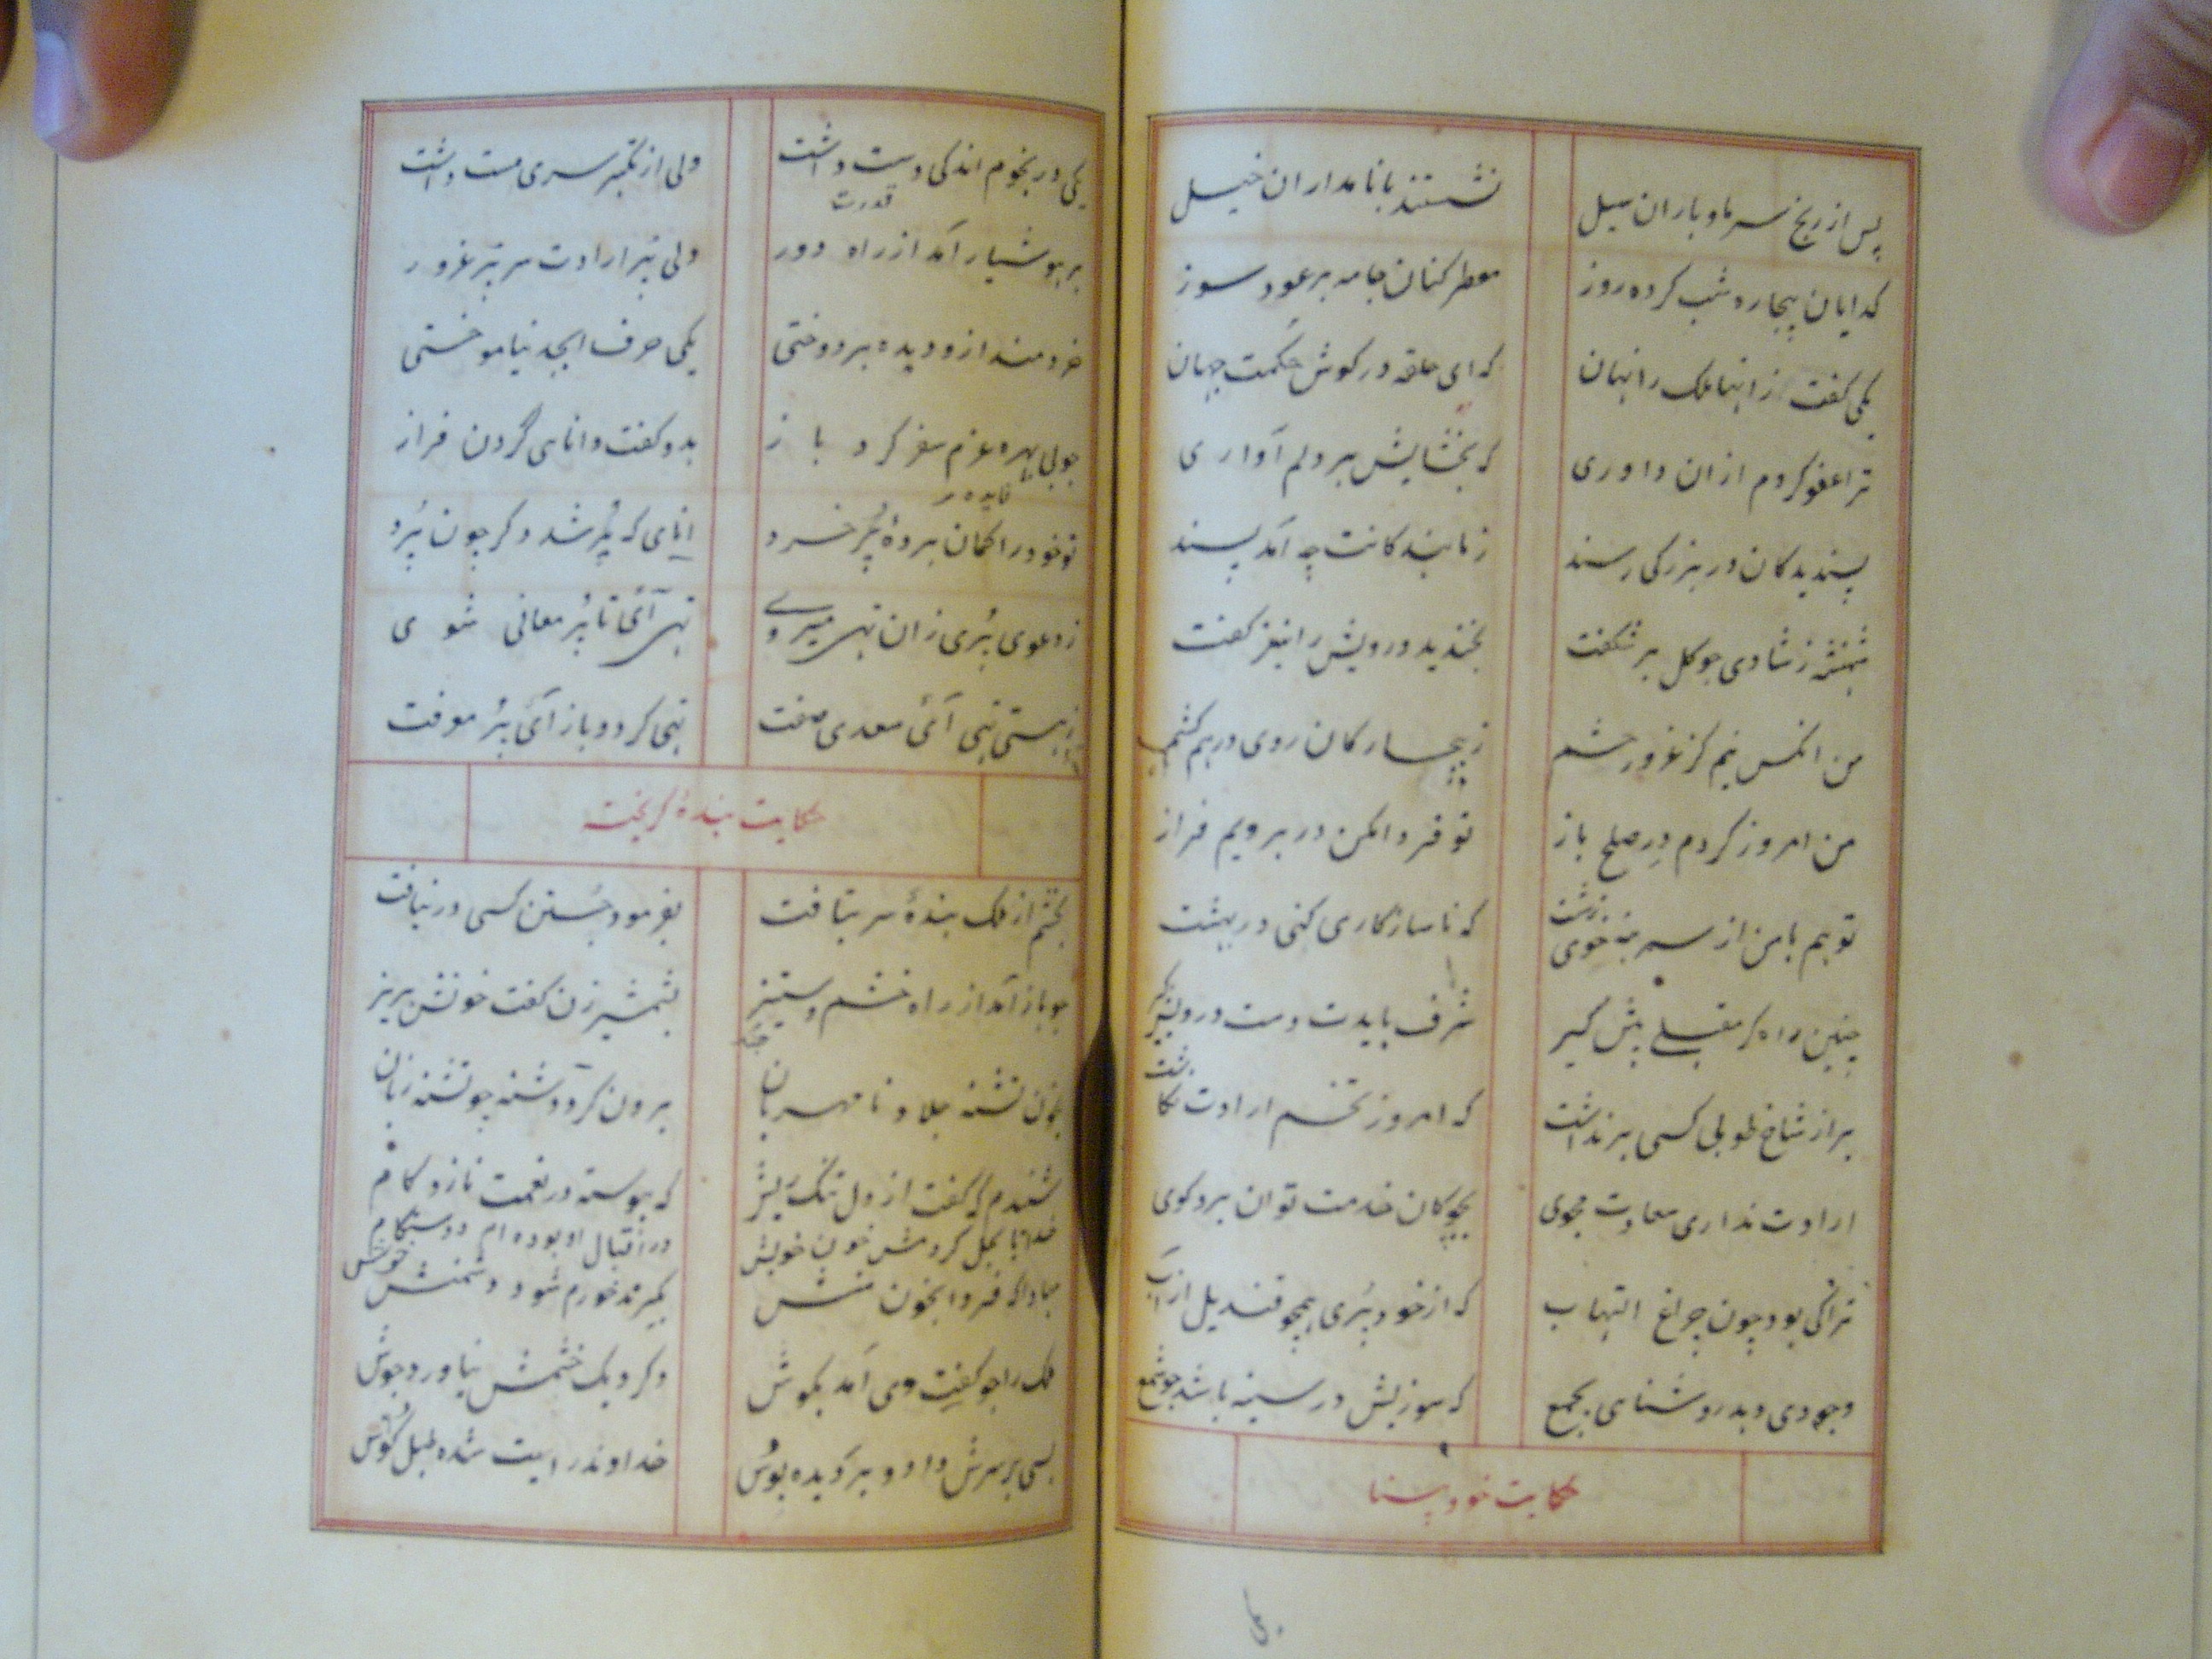 پس از رنج سرما و باران سیل نشستند با نامداران خیل
کدایان بیچاره شب کرده روز معطر کنان جامه بر عود سوز
یکی گفت زاینها ملک را نهان که ای حلقه در کوش حکمت جهان
پسندیدکان در بزرکی رسند ز ما بندکانت چه آمد پسند
شهنشه ز شادی چو کل بر شکفت بخندید و درویش را نیز گفت
من انکس نیم کز غرور حشم ز بیچارکان روی درهم کشم
تو هم با من از سر بنه خوی زشت که ناسازکاری کنی در بهشت
من امروز کردم در صلح باز تو فردا مکن در برویم فراز
چنین راه کر مقبلی پیش کیر شرف بایدت دست درویش کیر
بر از شاخ طوبی کسی بر نداشت که امروز تخم ارادت نکاشت
ارادت نداری سعادت مجوی بچوکان خدمت توان برد کوی
ترا کی بود چون چراغ التهاب که از خود پری همچو قندیل از آب
وجودی دهد روشنای بجمع که سوزیش در سینه باشد چو شمع
حکایت خود پسند
یکی در نجوم اندکی دست داشت ولی از تکبر سری مست داشت
قدرت
بر بوشیار آمد از راه دور ولی پر ارادت سر پر غرور
خردمند ازو دیده بر دوختی یکی حرف ابجد نیاموختی
چو بی بهره عزم سفر کرد باز بدو گفت دانای گردن فراز
فایده
تو خود را کمان بردهٔ پر خرد انای که پر شد دکر چون برد
ز دعوی پری زان تهی میروی تهی آئی تا پر معانی شوی
ز هستی تهی آئی سعدی صفت تهی کرد و باز آئی پر معرفت
حکایت بندهٔ کریخته
بخشم از ملک بندهٔ سر بتافت بفرمود جستن کسی در نیافت
چو باز آمد از راه خشم و ستیز بشمشیر زن گفت خونش بریز
بخون تشنه جلاد نامهربان برون کرد دشنه چو تشنه زبان
شنیدم که گفت از دل تنگ ریش خدایا بحل کردمش خون خویش
که پیوسته در نعمت ناز و کام در اقبال او بوده ام دوستکام
مبادا که فردا بخون منش بگیرند خورم شود دشمنش
ملک را چو گفت وی آمد بکوش دکر دیک خشمش نیاورد جوش
بسی بر سرش داد و بر دیده بوس خداوند رایت شده طبل کوس